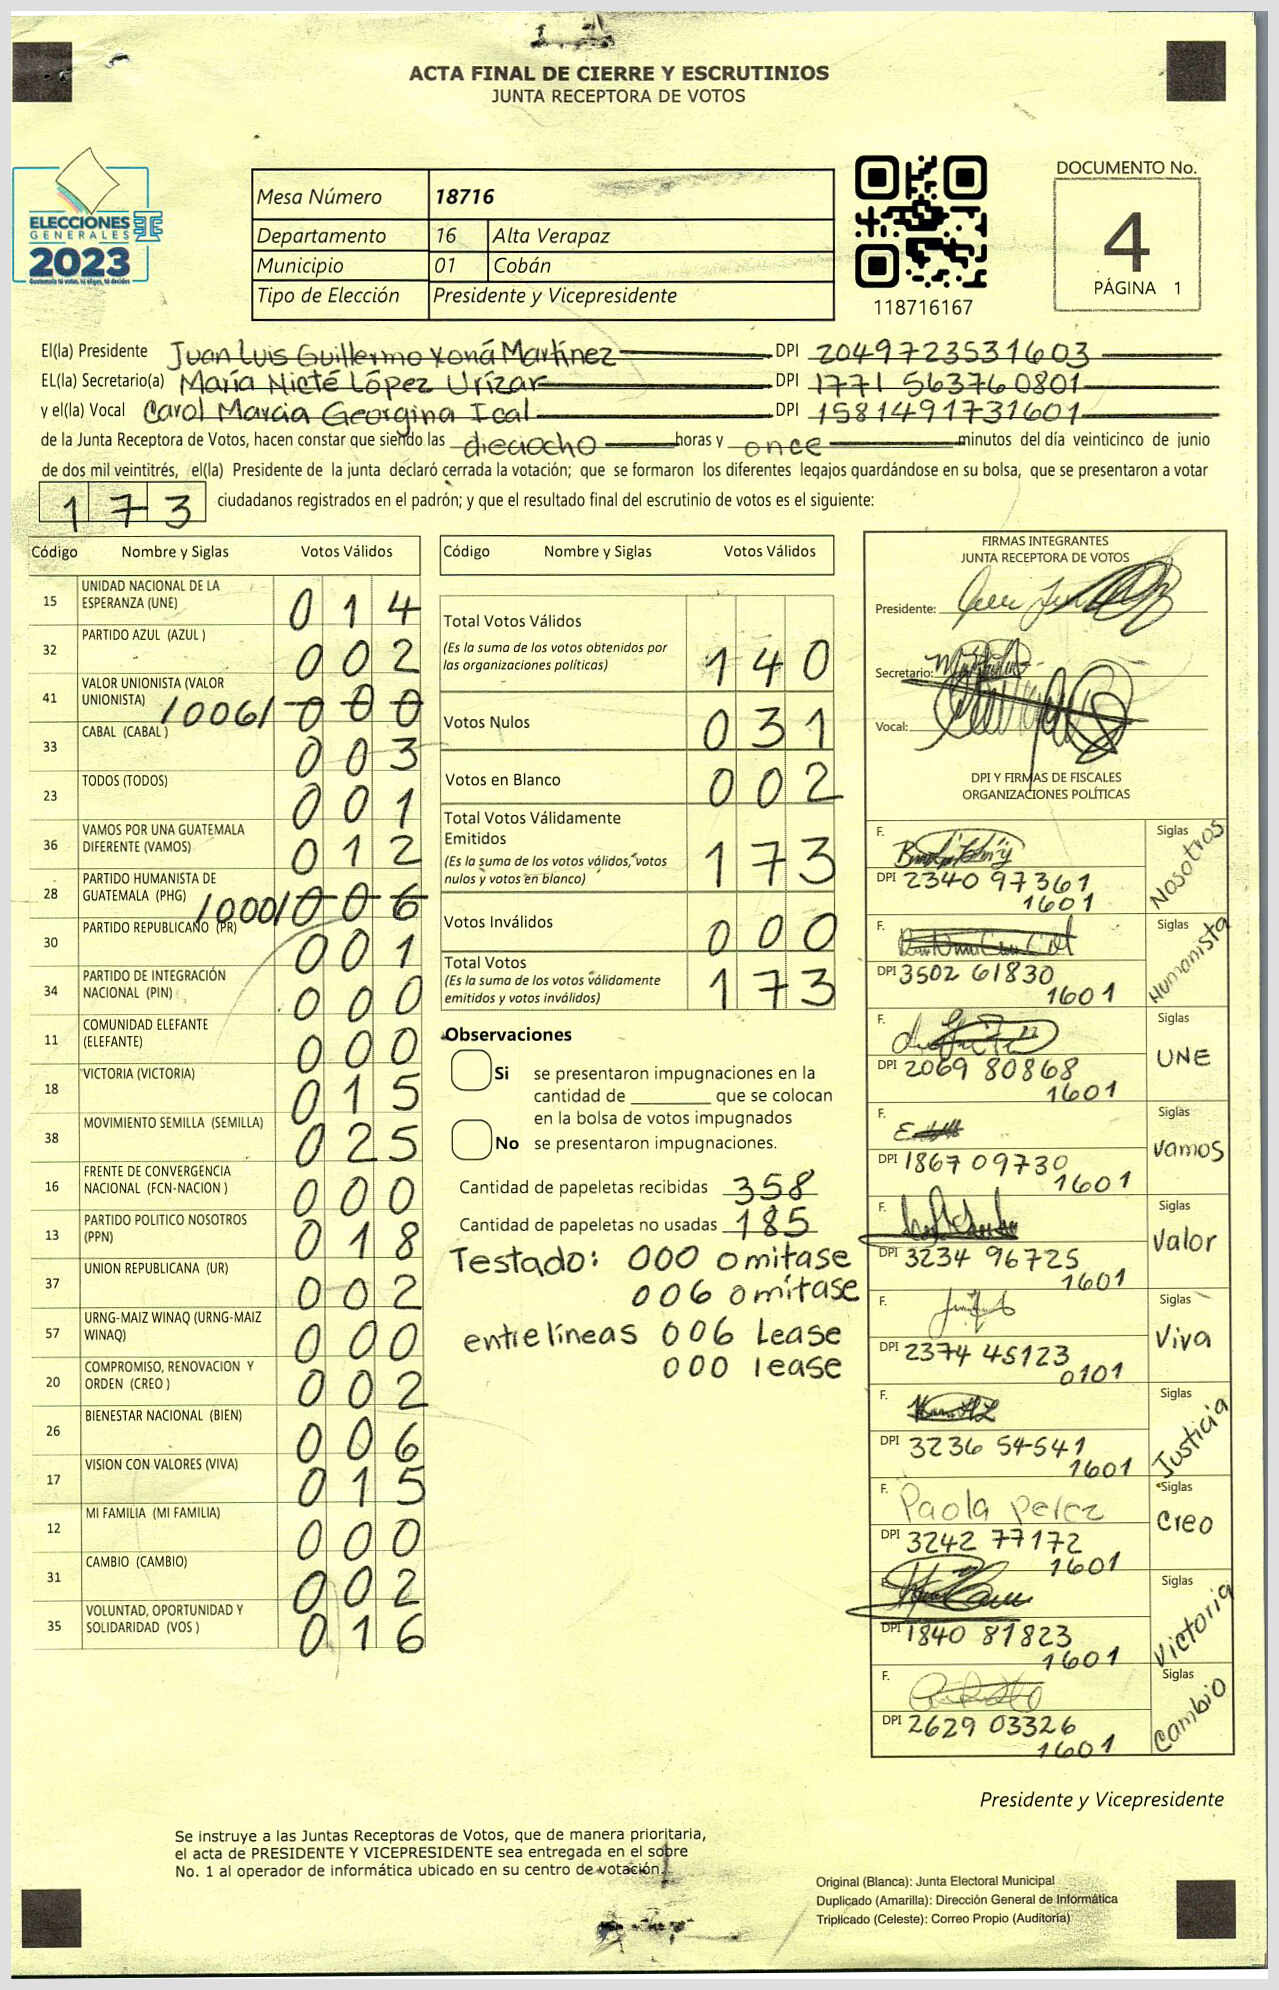 ACTA FINAL DE CIERRE Y ESCRUTINIOS
JUNTA RECEPTORA DE VOTOS
ELECCIONES
GENERALES
2023
Mesa Número 18716
Departamento 16 Alta Verapaz
Municipio 01 Cobán
Tipo de Elección Presidente y Vicepresidente
118716167
DOCUMENTO No.
4
PÁGINA 1
El(la) Presidente Juan Luis Guillermo Xoná Martínez DPI 2049723531603
EL(la) Secretario(a) María Nicté López Urízar DPI 1771 56376 0801
y el(la) Vocal Carol Marcia Georgina Ical DPI 1581491731601
de la Junta Receptora de Votos, hacen constar que siendo las dieciocho horas y once minutos del día veinticinco de junio
de dos mil veintitrés, el(la) Presidente de la junta declaró cerrada la votación; que se formaron los diferentes legajos guardándose en su bolsa, que se presentaron a votar
173 ciudadanos registrados en el padrón; y que el resultado final del escrutinio de votos es el siguiente:
Código Nombre y Siglas Votos Válidos
15 UNIDAD NACIONAL DE LA
ESPERANZA (UNE) 014
32 PARTIDO AZUL (AZUL ) 002
41 VALOR UNIONISTA (VALOR
UNIONISTA) /006/ 000
33 CABAL (CABAL ) 003
23 TODOS (TODOS) 001
36 VAMOS POR UNA GUATEMALA
DIFERENTE (VAMOS) 012
28 PARTIDO HUMANISTA DE
GUATEMALA (PHG) /000/ 006
30 PARTIDO REPUBLICANO (PR) 001
34 PARTIDO DE INTEGRACIÓN
NACIONAL (PIN) 000
11 COMUNIDAD ELEFANTE
(ELEFANTE) 000
18 VICTORIA (VICTORIA) 015
38 MOVIMIENTO SEMILLA (SEMILLA) 025
16 FRENTE DE CONVERGENCIA
NACIONAL (FCN-NACION ) 000
13 PARTIDO POLITICO NOSOTROS
(PPN) 018
37 UNION REPUBLICANA (UR) 002
57 URNG-MAIZ WINAQ (URNG-MAIZ
WINAQ) 000
20 COMPROMISO, RENOVACION Y
ORDEN (CREO ) 002
26 BIENESTAR NACIONAL (BIEN) 006
17 VISION CON VALORES (VIVA) 015
12 MI FAMILIA (MI FAMILIA) 000
31 CAMBIO (CAMBIO) 002
35 VOLUNTAD, OPORTUNIDAD Y
SOLIDARIDAD (VOS ) 016
Código Nombre y Siglas Votos Válidos
Total Votos Válidos
(Es la suma de los votos obtenidos por
las organizaciones políticas) 140
Votos Nulos 031
Votos en Blanco 002
Total Votos Válidamente
Emitidos
(Es la suma de los votos válidos, votos
nulos y votos en blanco) 173
Votos Inválidos 000
Total Votos
(Es la suma de los votos válidamente
emitidos y votos inválidos) 173
Observaciones
Si se presentaron impugnaciones en la
cantidad de ________ que se colocan
en la bolsa de votos impugnados
No se presentaron impugnaciones.
Cantidad de papeletas recibidas 358
Cantidad de papeletas no usadas 185
Testado: 000 omitase
006 omitase
entrelíneas 006 Lease
000 lease
FIRMAS INTEGRANTES
JUNTA RECEPTORA DE VOTOS
Presidente:
Secretario:
Vocal:
DPI Y FIRMAS DE FISCALES
ORGANIZACIONES POLÍTICAS
F. Siglas Nosotros
DPI 2340 97361
1601
F. Siglas Humanista
DPI 3502 61830
1601
F. Siglas UNE
DPI 2069 80868
1601
F. Siglas vamos
DPI 1867 09730
1601
F. Siglas Valor
DPI 3234 96725
1601
F. Siglas Viva
DPI 2374 45123
0101
F. Siglas Justicia
DPI 3236 54541
1601
F. Paola Perez Siglas Creo
DPI 3242 77172
1601
Siglas Victoria
DPI 1840 81823
1601
F. Siglas Cambio
DPI 2629 03326
1601
Presidente y Vicepresidente
Se instruye a las Juntas Receptoras de Votos, que de manera prioritaria,
el acta de PRESIDENTE Y VICEPRESIDENTE sea entregada en el sobre
No. 1 al operador de informática ubicado en su centro de votación.
Original (Blanca): Junta Electoral Municipal
Duplicado (Amarilla): Dirección General de Informática
Triplicado (Celeste): Correo Propio (Auditoría)